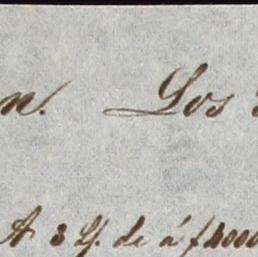 n. Los
A 3 Lf. de á f 4000